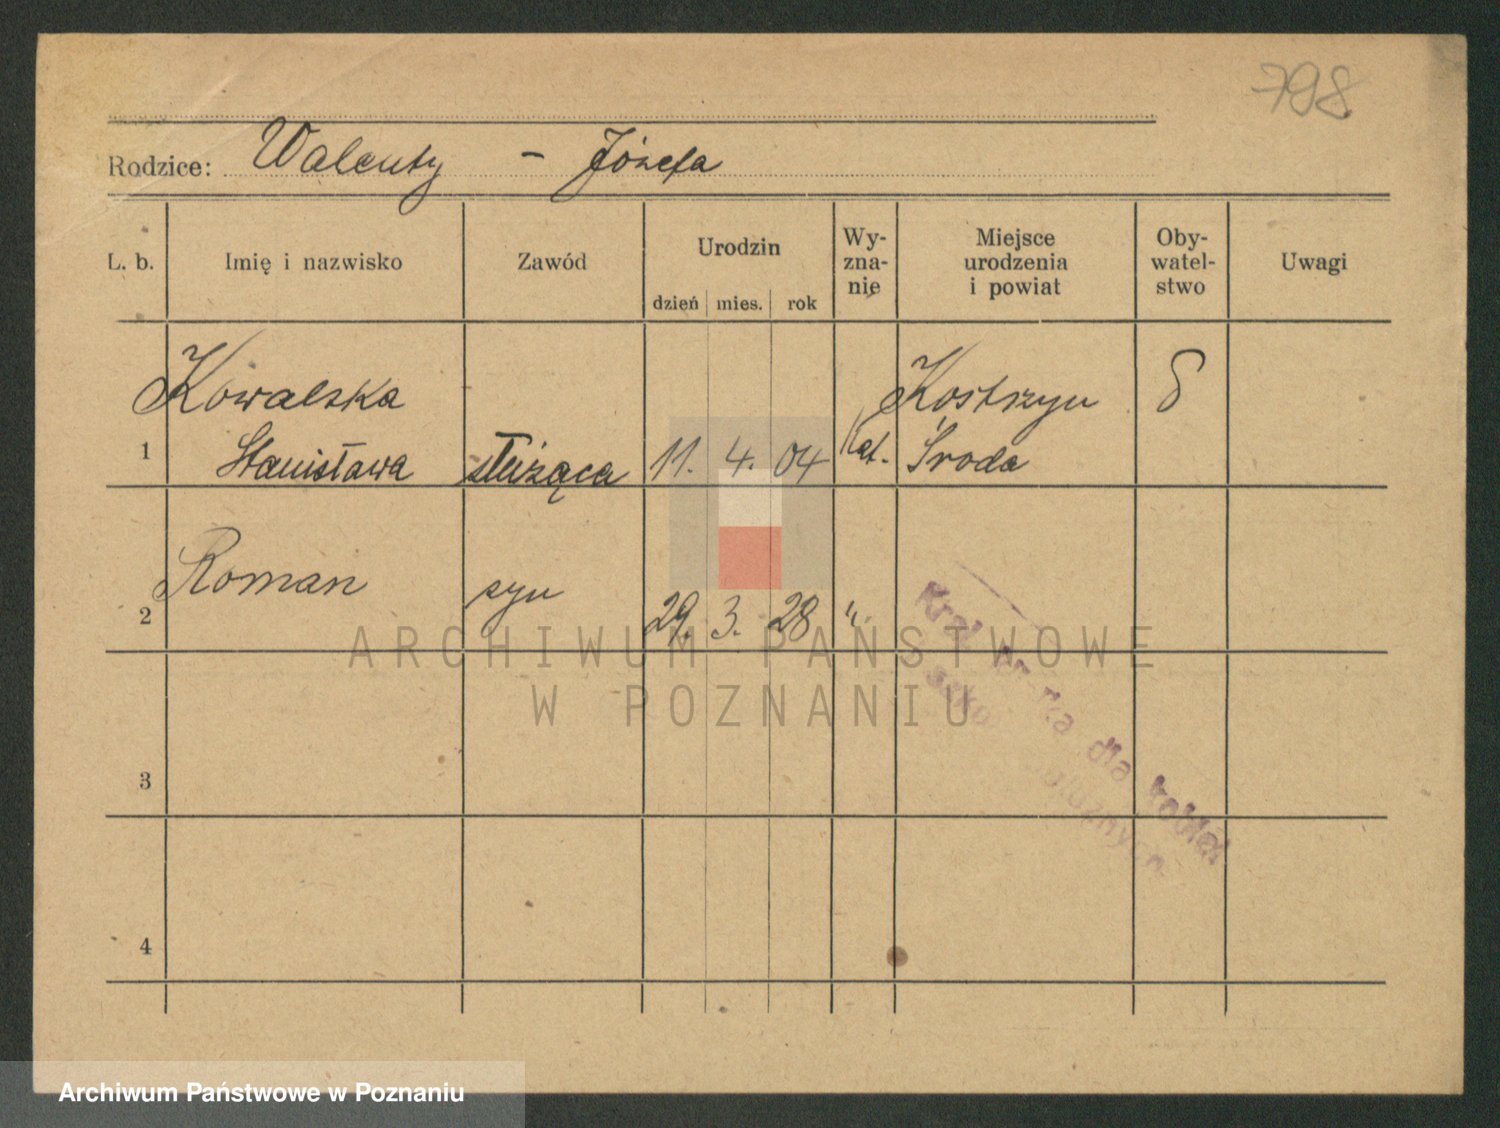 798
Rodzice: Walenty - Józefa
L. b. Imię i nazwisko Zawód Urodzin dzień mies. rok Wy-zna-nie Miejsce urodzenia i powiat Oby-watel-stwo Uwagi
Kowalska Kostrzyn
1 Stanisława służąca 11. 4. 04 kat. Środa
2 Roman syn 29. 3. 28 "
3
4
dla kobiet
ARCHIWUM PAŃSTWOWE
W POZNANIU
Archiwum Państwowe w Poznaniu